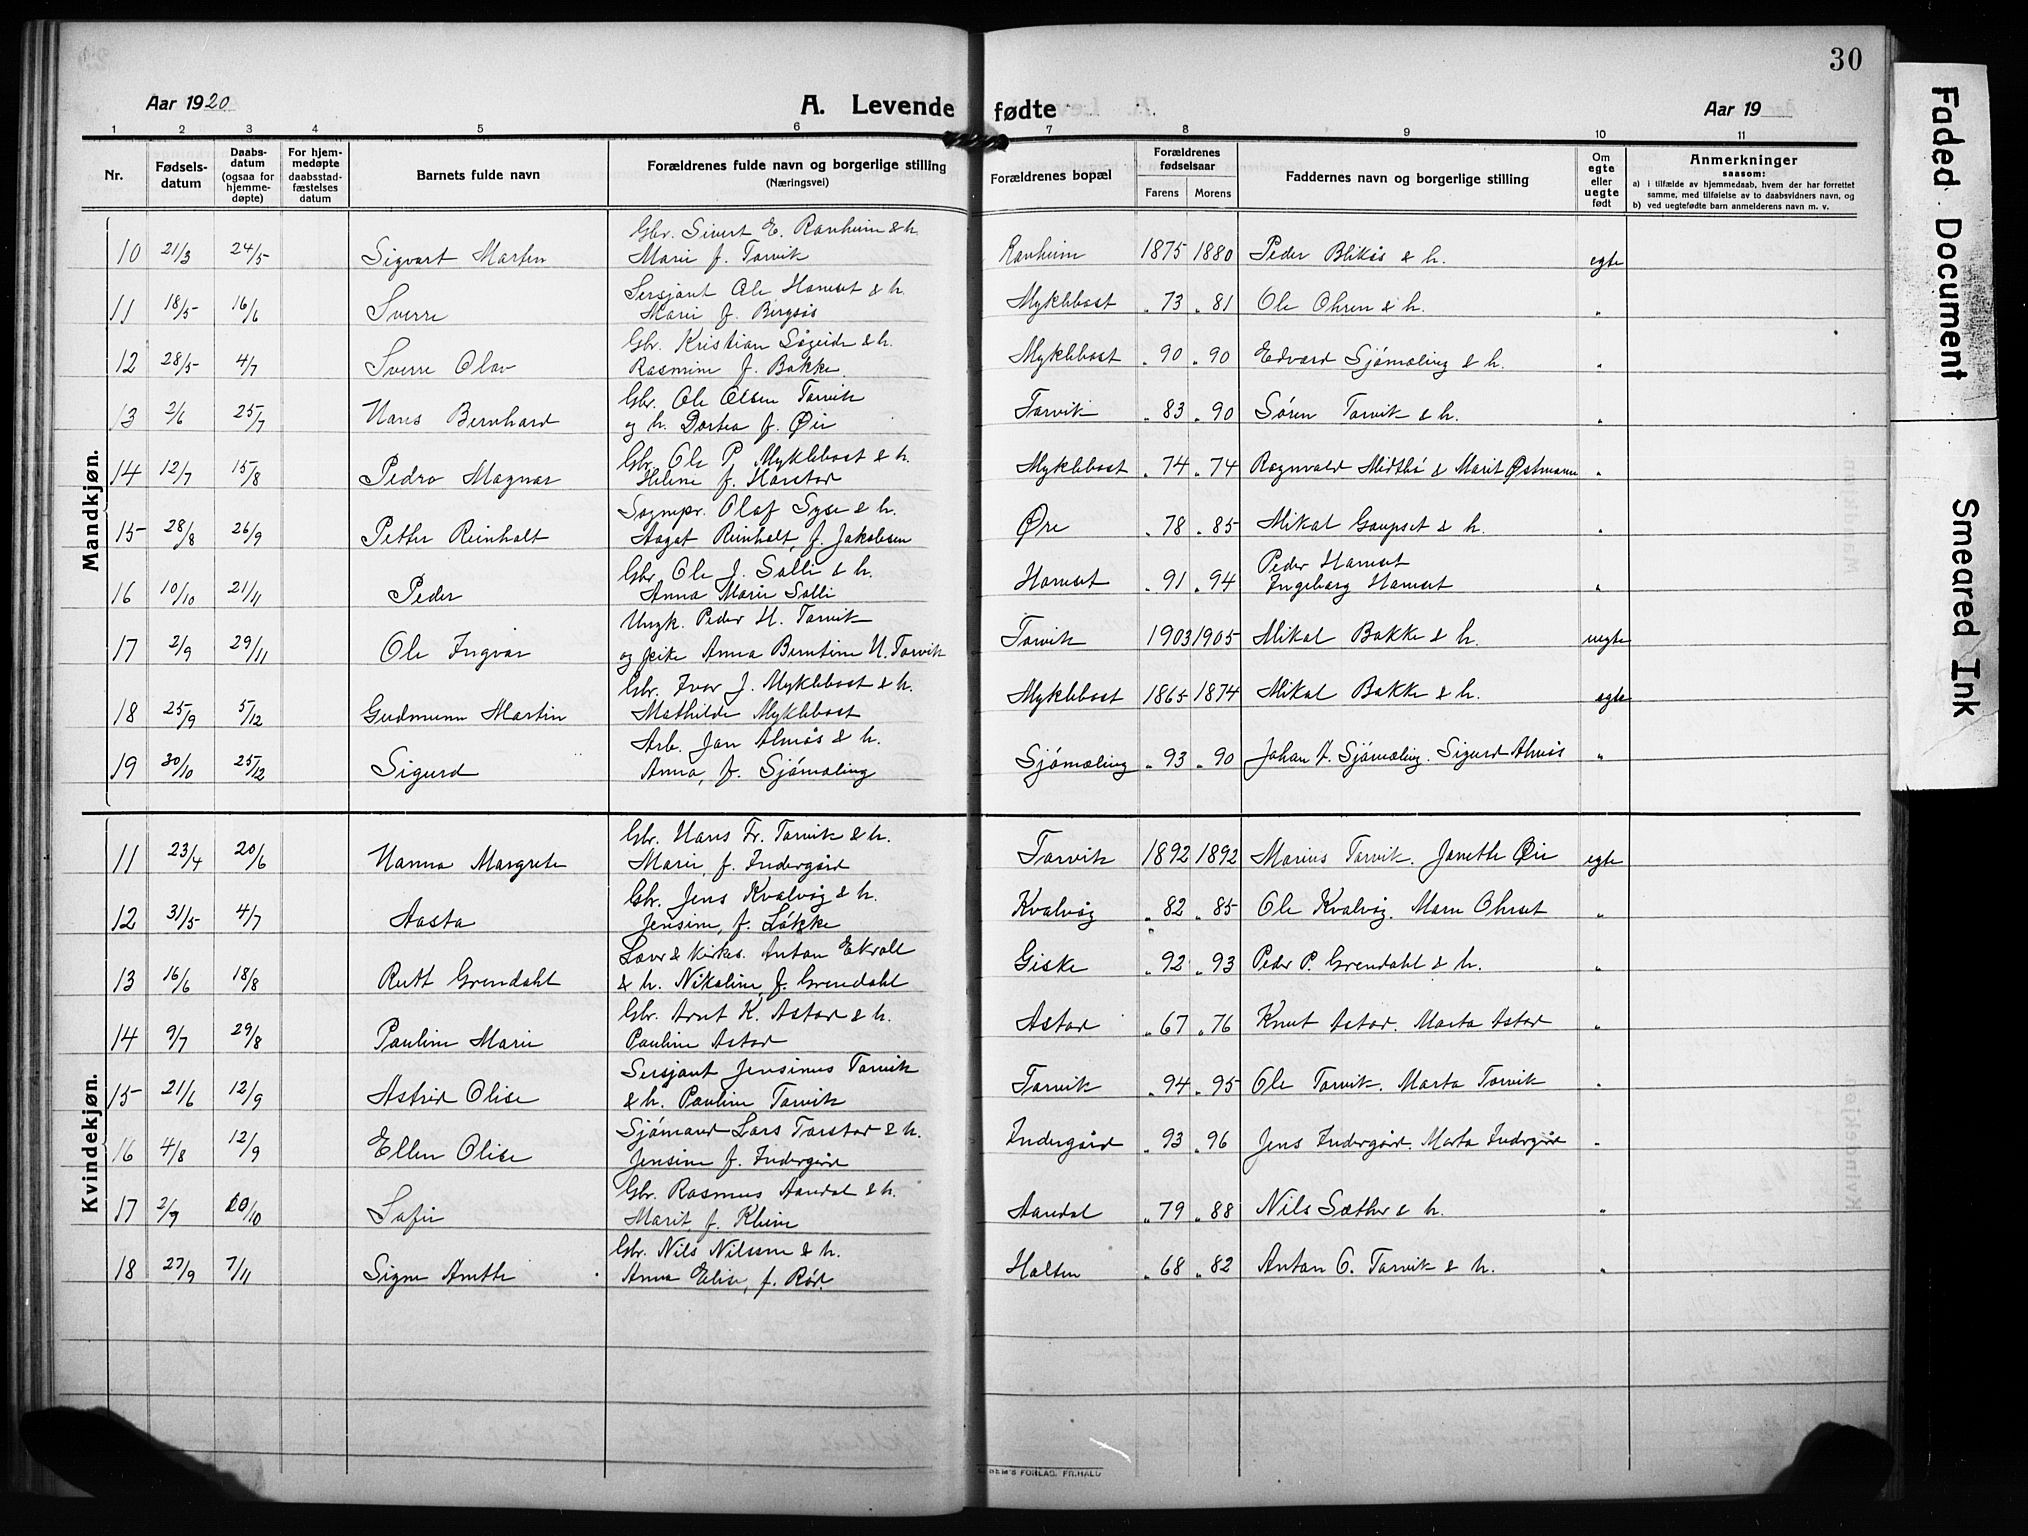 30
Aar 1920 A. Levende fødte Aar 19
1 2 3 4 5 6 7 8 9 10 11
Nr. Fødsels-datum Daabs-datum (ogsaa for hjemme-døpte) For hjem-medøpte daabsstad-fæstelses datum Barnets fulde navn Forældrenes fulde navn og borgerlige stilling (Næringsvei) Forældrenes bopæl Forældrenes fødselsaar Farens Morens Faddernes navn og borgerlige stilling Om egte eller uegte født Anmerkninger saasom: a) i tilfælde av hjemmedaab, hvem der har forrettet samme, med tilføielse av to daabsvidners navn, og b) ved uegtefødte barn anmelderens navn m. v.
Mandkjøn.
Gbr. Sivert E. Ranheim & h.
10 21/3 24/5 Sigvart Martin Marie f. Torvik Ranheim 1875 1880 Peder Blikås & h. egte
Sersjant Ole Hamset & h.
11 18/5 16/6 Sverre Marie f. Bergsås Myklebost " 73 " 81 Ole Ohren & h. "
Gbr. Kristian Søgeide & h.
12 28/5 4/7 Sverre Olav Rasmine f. Bakke Myklebost " 90 " 90 Edvard Sjómæling & h. "
Gbr. Ole Olsen Torvik
13 2/6 25/7 Hans Bernhard og h. Dortea f. Øie Torvik " 83 " 90 Søren Torvik & h. "
Gbr. Ole P. Myklebost & h.
14 12/7 15/8 Pedro Magnar Helene f. Harstad Myklebost " 74 " 74 Ragnvald Midtbö & Marit Østmann "
Sognepr. Olaf Syse & h.
15 28/8 26/9 Petter Reinholt Aagot Reinholt, f. Jakobsen Øre " 78 " 85 Mikal Gaupset & h. "
Gbr. Ole J. Solli & h. Peder Hamset
16 10/10 21/11 Peder Anna Marie Solli Hamset " 91 " 94 Ingeborg Hamset "
Ungk. Peder H. Torvik
17 2/9 29/11 Ole Ingvar og pike Anna Berntine N. Torvik Torvik 1903 1905 Mikal Bakke & h. uegte
Gbr. Ivar J. Myklebost & h.
18 25/9 5/12 Gudmunn Martin Mathilde Myklebost Myklebost 1865 1874 Mikal Bakke & h. egte
Arb. Jon Almås & h.
19 30/10 25/12 Sigurd Anna, f. Sjómæling Sjómæling " 93 " 90 Johan A. Sjómæling. Sigurd Almås "
Kvindekjøn.
Gbr. Hans Fr. Torvik & h.
11 23/4 20/6 Hanna Margrete Marie, f. Indergård Torvik 1892 1892 Marius Torvik. Janette Øie egte
Gbr. Jens Kvalvåg & h.
12 31/5 4/7 Aasta Jensine, f. Løkke Kvalvåg " 82 " 85 Ole Kvalvåg. Maren Ohrset "
Lærer & kirkes. Anton Ekroll
13 16/6 18/8 Rutt Grendahl & h. Nikoline, f. Grendahl Giske " 92 " 93 Peder P. Grendahl & h. "
Gbr. Arnt K. Astad & h.
14 9/7 29/8 Pauline Marie Pauline Astad Astad " 67 " 76 Knut Astad. Marta Astad "
Sersjant Jensinus Torvik
15 21/6 12/9 Astrid Olise & h. Pauline Torvik Torvik " 94 " 95 Ole Torvik. Marta Torvik "
Sjómand Lars Torstad & h.
16 4/8 12/9 Ellen Olise Jensine f. Indergård Indergård " 93 " 96 Jens Indergård. Marta Indergård "
Gbr. Rasmus Aandal & h.
17 2/9 20/10 Sofie Marit, f. Kleive Aandal " 79 " 88 Nils Sæther & h. "
Gbr. Nils Nilssen & h.
18 27/9 7/11 Signe Anette Anna Elise, f. Rød. Holten " 68 " 82 Anton C. Torvik & h. "
FORLAG. FR.HALD
Faded Document
Smeared Ink